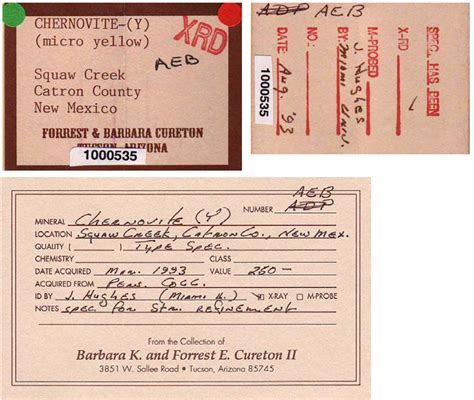 CHERNOVITE-(Y)
(micro yellow)
XRD
AEB
Squaw Creek
Catron County
New Mexico
FORREST & BARBARA CURETON
TUCSON, ARIZONA
1000535
ADP AEB
SPEC. HAS BEEN
X-RD
M-PROBED
BY: MIAMI UNIV.
J. Hughes
DATE Aug. '93
1000535
AEB
NUMBER ADP
MINERAL Chernovite (Y)
LOCATION Squaw Creek, Catron Co., New Mex.
QUALITY ( ) Type Spec.
CHEMISTRY CLASS
DATE ACQUIRED Mar. 1993 VALUE 250-
ACQUIRED FROM Pers. Coll.
ID BY J. Hughes (Miami U.) X-RAY M-PROBE
NOTES Spec. for Str. refinement
From the Collection of
Barbara K. and Forrest E. Cureton II
3851 W. Sollee Road • Tucson, Arizona 85745